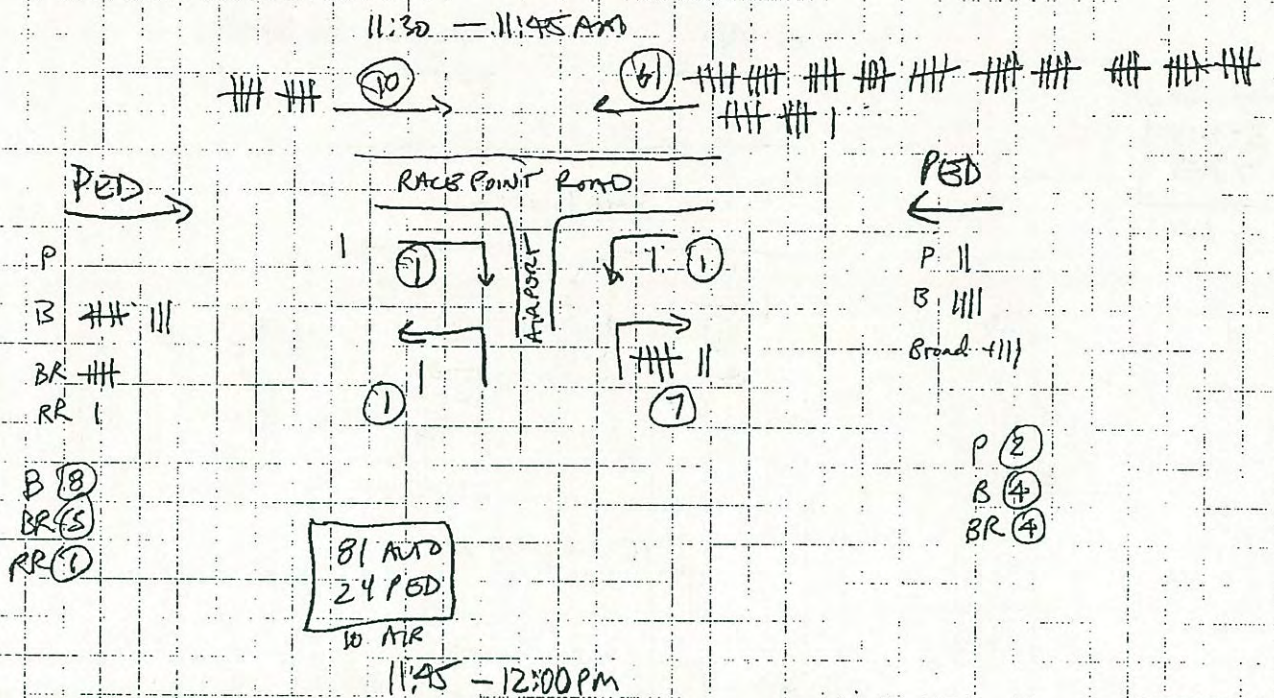 11:30 — 11:45 AM
10
61
PED
RACE POINT ROAD
PED
P
1
1
P
B
AIRPORT
B
BR
Broad
RR
1
7
B 8
BR 5
RR 1
P 2
B 4
BR 4
81 AUTO
24 PED
10 AIR
11:45 — 12:00 PM